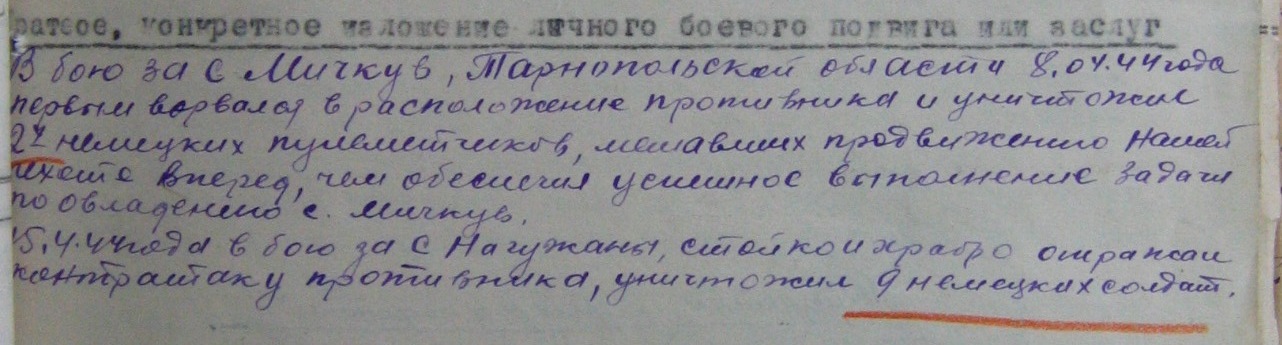 раткое, конкретное изложение личного боевого подвига или заслуг
В бою за с Мичкув, Тарнопольской области 8.04.44года
первым ворвался в расположение противника и уничтожил
2х немецких пулеметчиков, мешавших продвижению нашей
пехоте вперед, чем обеспечил успешное выполнение задачи
по овладению с. Мичкув.
15.4.44года в бою за с Нагужаны, стойко и храбро отражая
контратаку противника, уничтожил 9 немецких солдат.